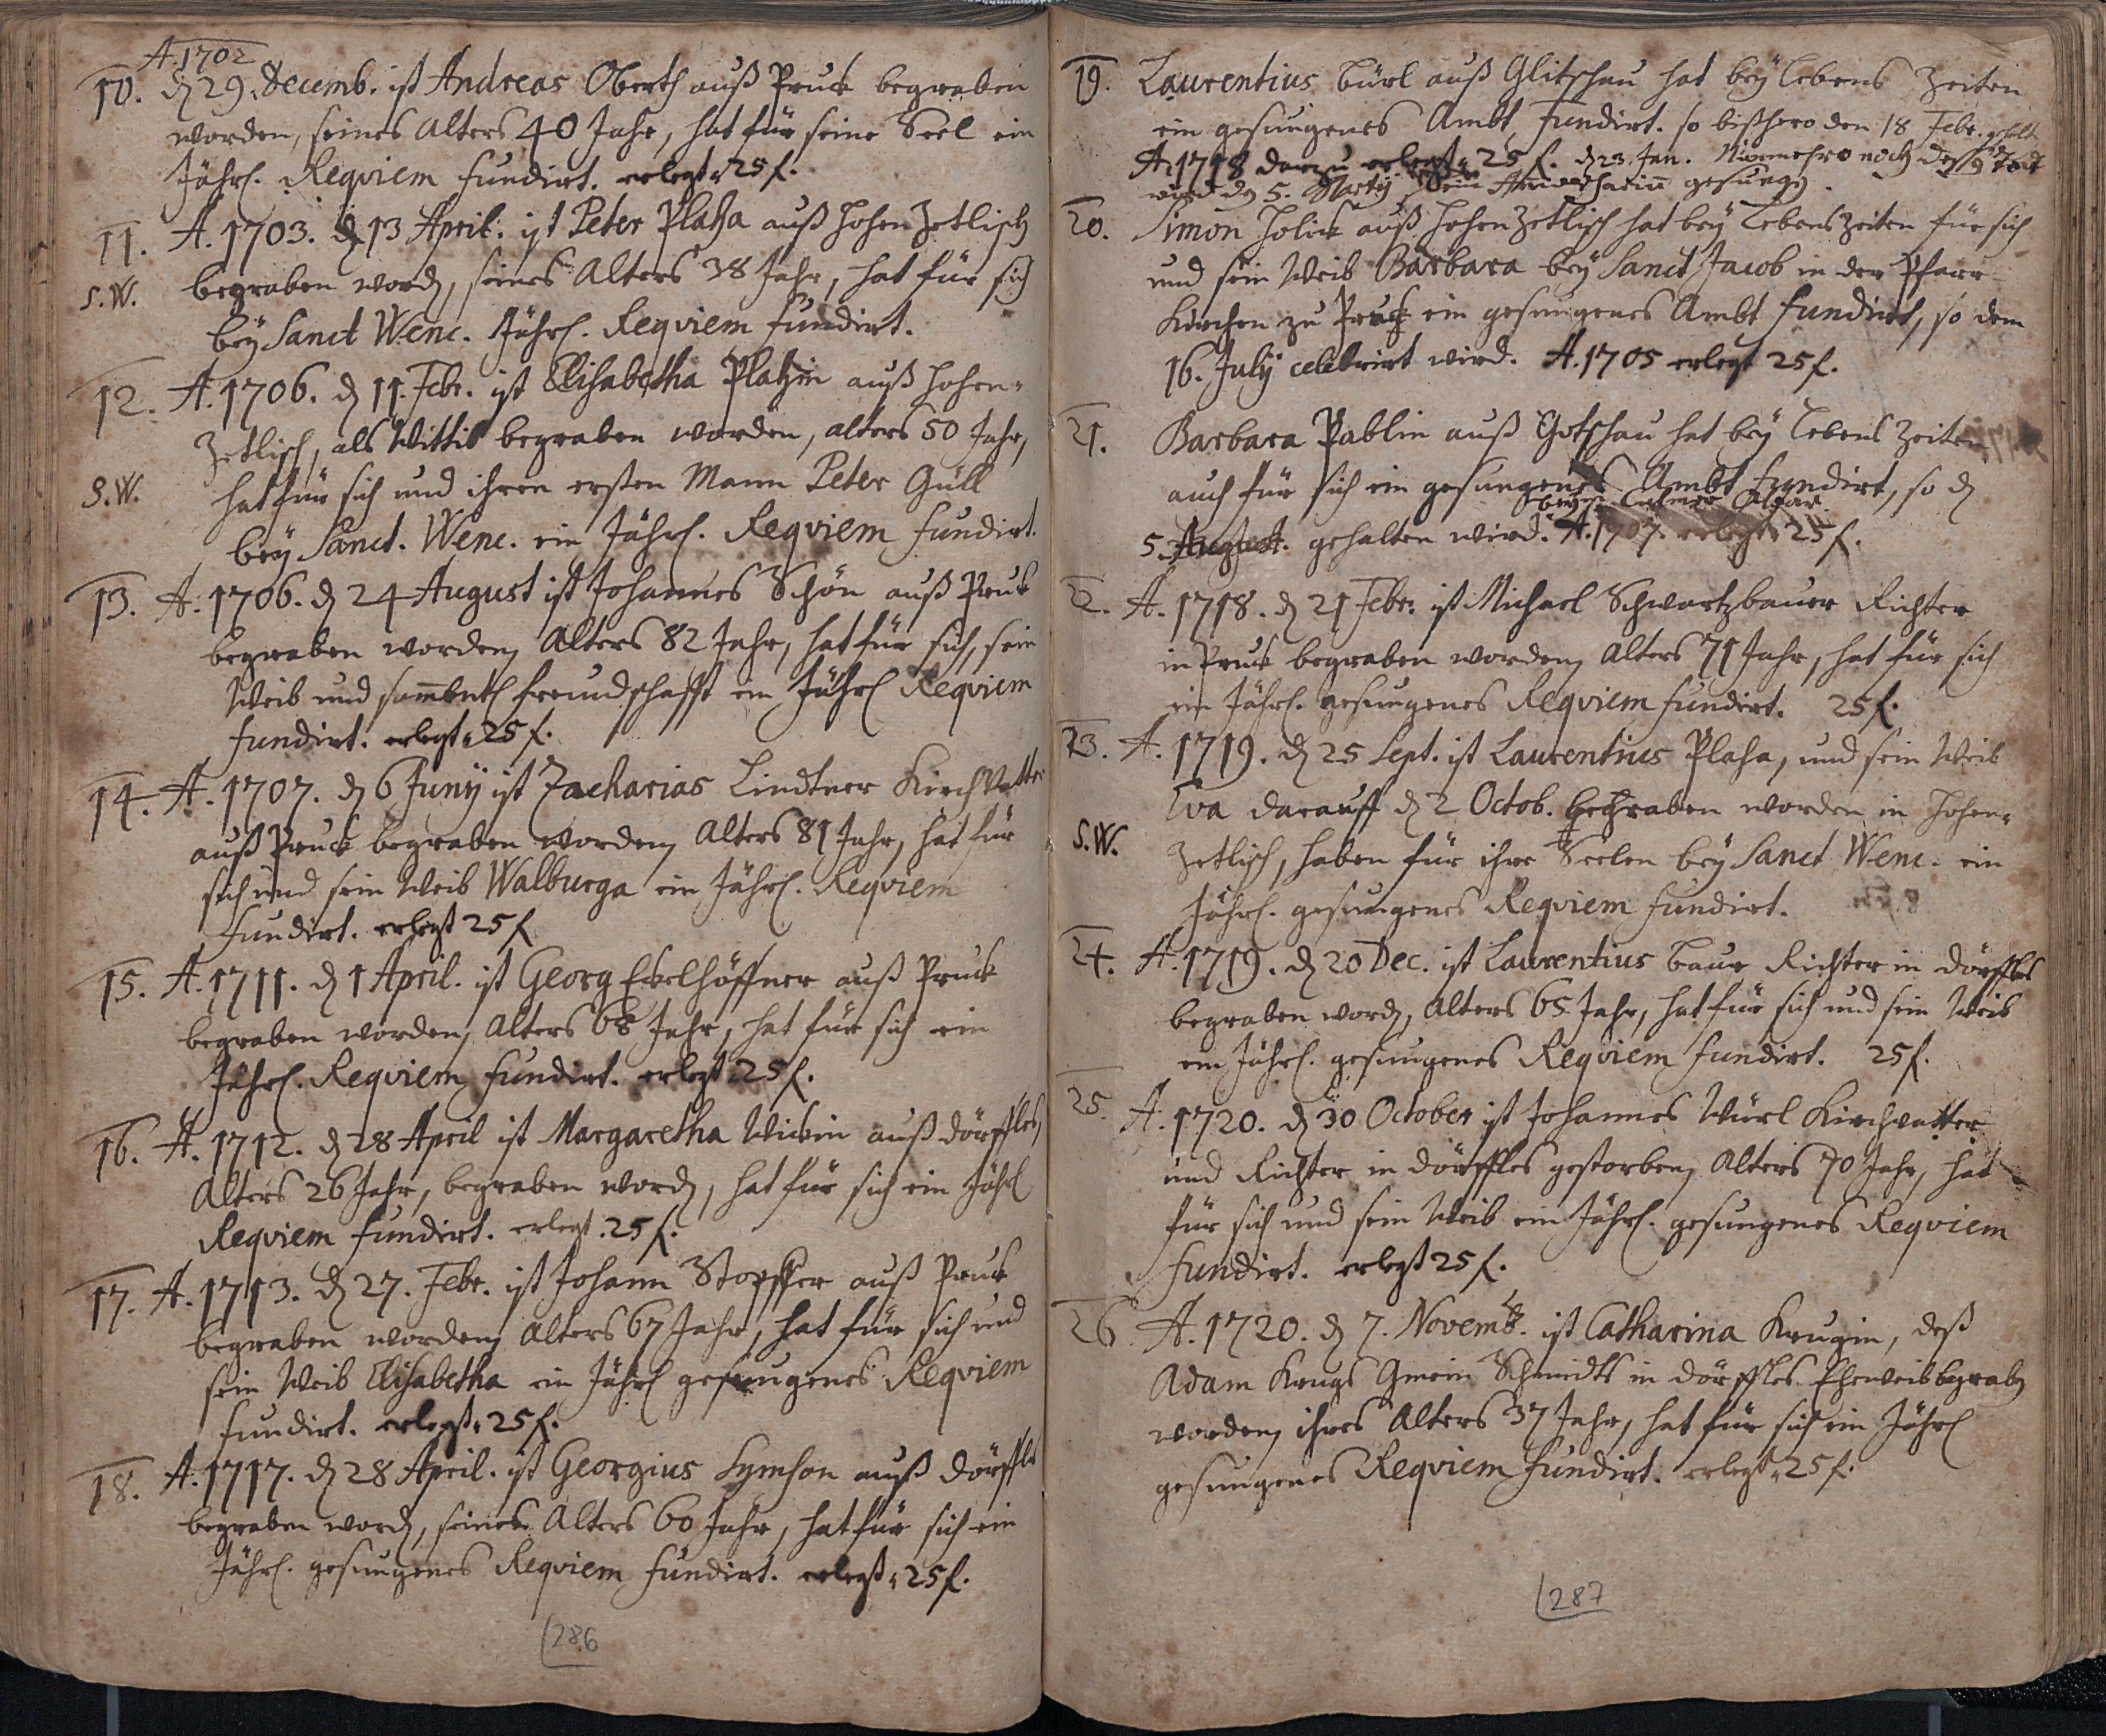 A. 1702
10. dḥ 29. Decemb. ist Andreas Oberth auß Pruck begraben
worden, seines Alters 40 Jahr, hat für seine Seel ein
Jährl. Reqviem fundirt. erlegt 25 f.
11. A. 1703. dḥ 13 April. ist Peter Plaha auß Hohen Zetlisch
S.W. begraben word, seines Alters 38 Jahr, hat für sich
bey Sanct Wenc. Jährl. Reqviem fundirt.
12. A. 1706. d 11. Febr. ist Elisabetha Plahin auß Hohen-
Zetlisch, als Wittib begraben worden, alters 50 Jahr,
S.W. hat für sich und ihren ersten Mann Peter Güll
bey Sanct. Wenc. ein Jährl. Reqviem fundirt.
13. A. 1706. d 24 August ist Johannes Schön auß Pruck
begraben worden, Alters 82 Jahr, hat für sich, sein
Weib und sammentl freundschafft ein Jährl Reqviem
fundirt. erlegt 25 f.
14. A. 1707. d 6 Juny ist Zacharias Lindtner Kirchvatter
auß Pruck begraben worden, Alters 81 Jahr, hat für
sich und sein Weib Walburga ein Jährl. Reqviem
fundirt. erlegt 25 f
15. A. 1711. d 1 April. ist Georg Eckelhöffner auß Pruck
begraben worden, Alters 68 Jahr, hat für sich ein
Jährl. Reqviem fundirt. erlegt 25 f.
16. A. 1712. d 28 April ist Margaretha auß Dörffles,
Alters 26 Jahr, begraben word, hat für sich ein Jährl
Reqviem fundirt. erlegt. 25 f.
17. A. 1713. d 27. Febr. ist Johann Stopffer auß Pruck
begraben worden, Alters 67 Jahr, hat für sich und
sein Weib Elisabetha ein Jährl gesungenes Reqviem
fundirt. erlegt 25 f.
18. A. 1717. d 28 April. ist Georgius Symson auß Dörffles
begraben word, seines Alters 60 Jahr, hat für sich ein
Jährl. gesungenes Reqviem fundirt. erlegt 25 f.
286
19. Laurentius Bürl auß Glitschau hat bey Lebens Zeiten
ein gesungenes Ambt fundirt. so bißhero den 18 Febr.
A. 1718 darzu erlegt 25 f. d 23. Jan. Nunmehro nach Todt
wird d 5. Marty sein Anniversarium gesung.
20. Simon Holick auß Hohen Zetlisch hat bey Lebens Zeiten für sich
und sein Weib Barbara bey Sanct Jacob in der Pfarr-
Kirchen zu Pruck ein gesungenes Ambt fundirt, so dem
16. July celebrirt wird. A. 1705 erlegt 25 f.
21. Barbara Pablin auß Gotschau hat bey Lebens Zeiten
auch für sich ein gesungenes Ambt fundirt, so d
Altar.
5. August. gehalten wird. A. 1707. erlegt 25 f.
22. A. 1718. d 21 Febr. ist Michael Schwartzbauer Richter
in Pruck begraben worden, Alters 71 Jahr, hat für sich
ein Jährl. gesungenes Reqviem fundirt. 25 f.
23. A. 1719. d 25 Sept. ist Laurentius Plaha, und sein Weib
Eva darauff d 2 Octob. begraben worden in Hohen-
S.W. Zetlisch, haben für ihre Seelen bey Sanct Wenc. ein
Jährl. gesungenes Reqviem fundirt.
24. A. 1719. d 20 Dec. ist Laurentius Baur Richter in Dörffles
begraben word, Alters 65 Jahr, hat für sich und sein Weib
ein Jährl. gesungenes Reqviem fundirt. 25 f.
25. A. 1720. d 30 October ist Johannes Würl Kirchvatter
und Richter in Dörffles gestorben, Alters 70 Jahr, hat
für sich und sein Weib ein Jährl. gesungenes Reqviem
fundirt. erlegt 25 f.
26 A. 1720. d 7. Novemb. ist Catharina Krugin, deß
Adam Krugs Gmein Schmidts in Dörffles Eheweib begrab
worden, ihres Alters 37 Jahr, hat für sich ein Jährl
gesungenes Reqviem fundirt. erlegt 25 f.
287